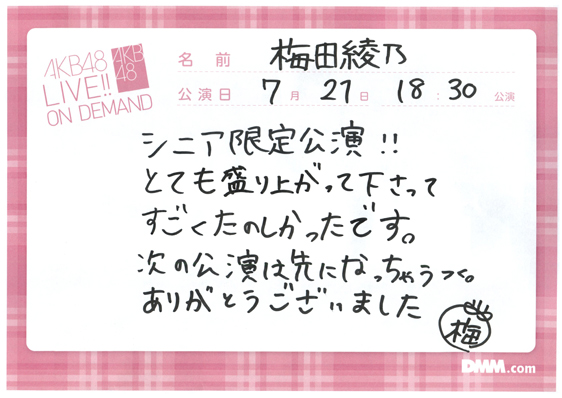 AKB48
LIVE!!
ON DEMAND
AKB
48
名前 梅田綾乃
公演日 7月27日 18:30 公演
シニア限定公演!!
とても盛り上がって下さって
すごくたのしかったです。
次の公演は先になっちゃうっ<。
ありがとうございました
梅
DMM.com